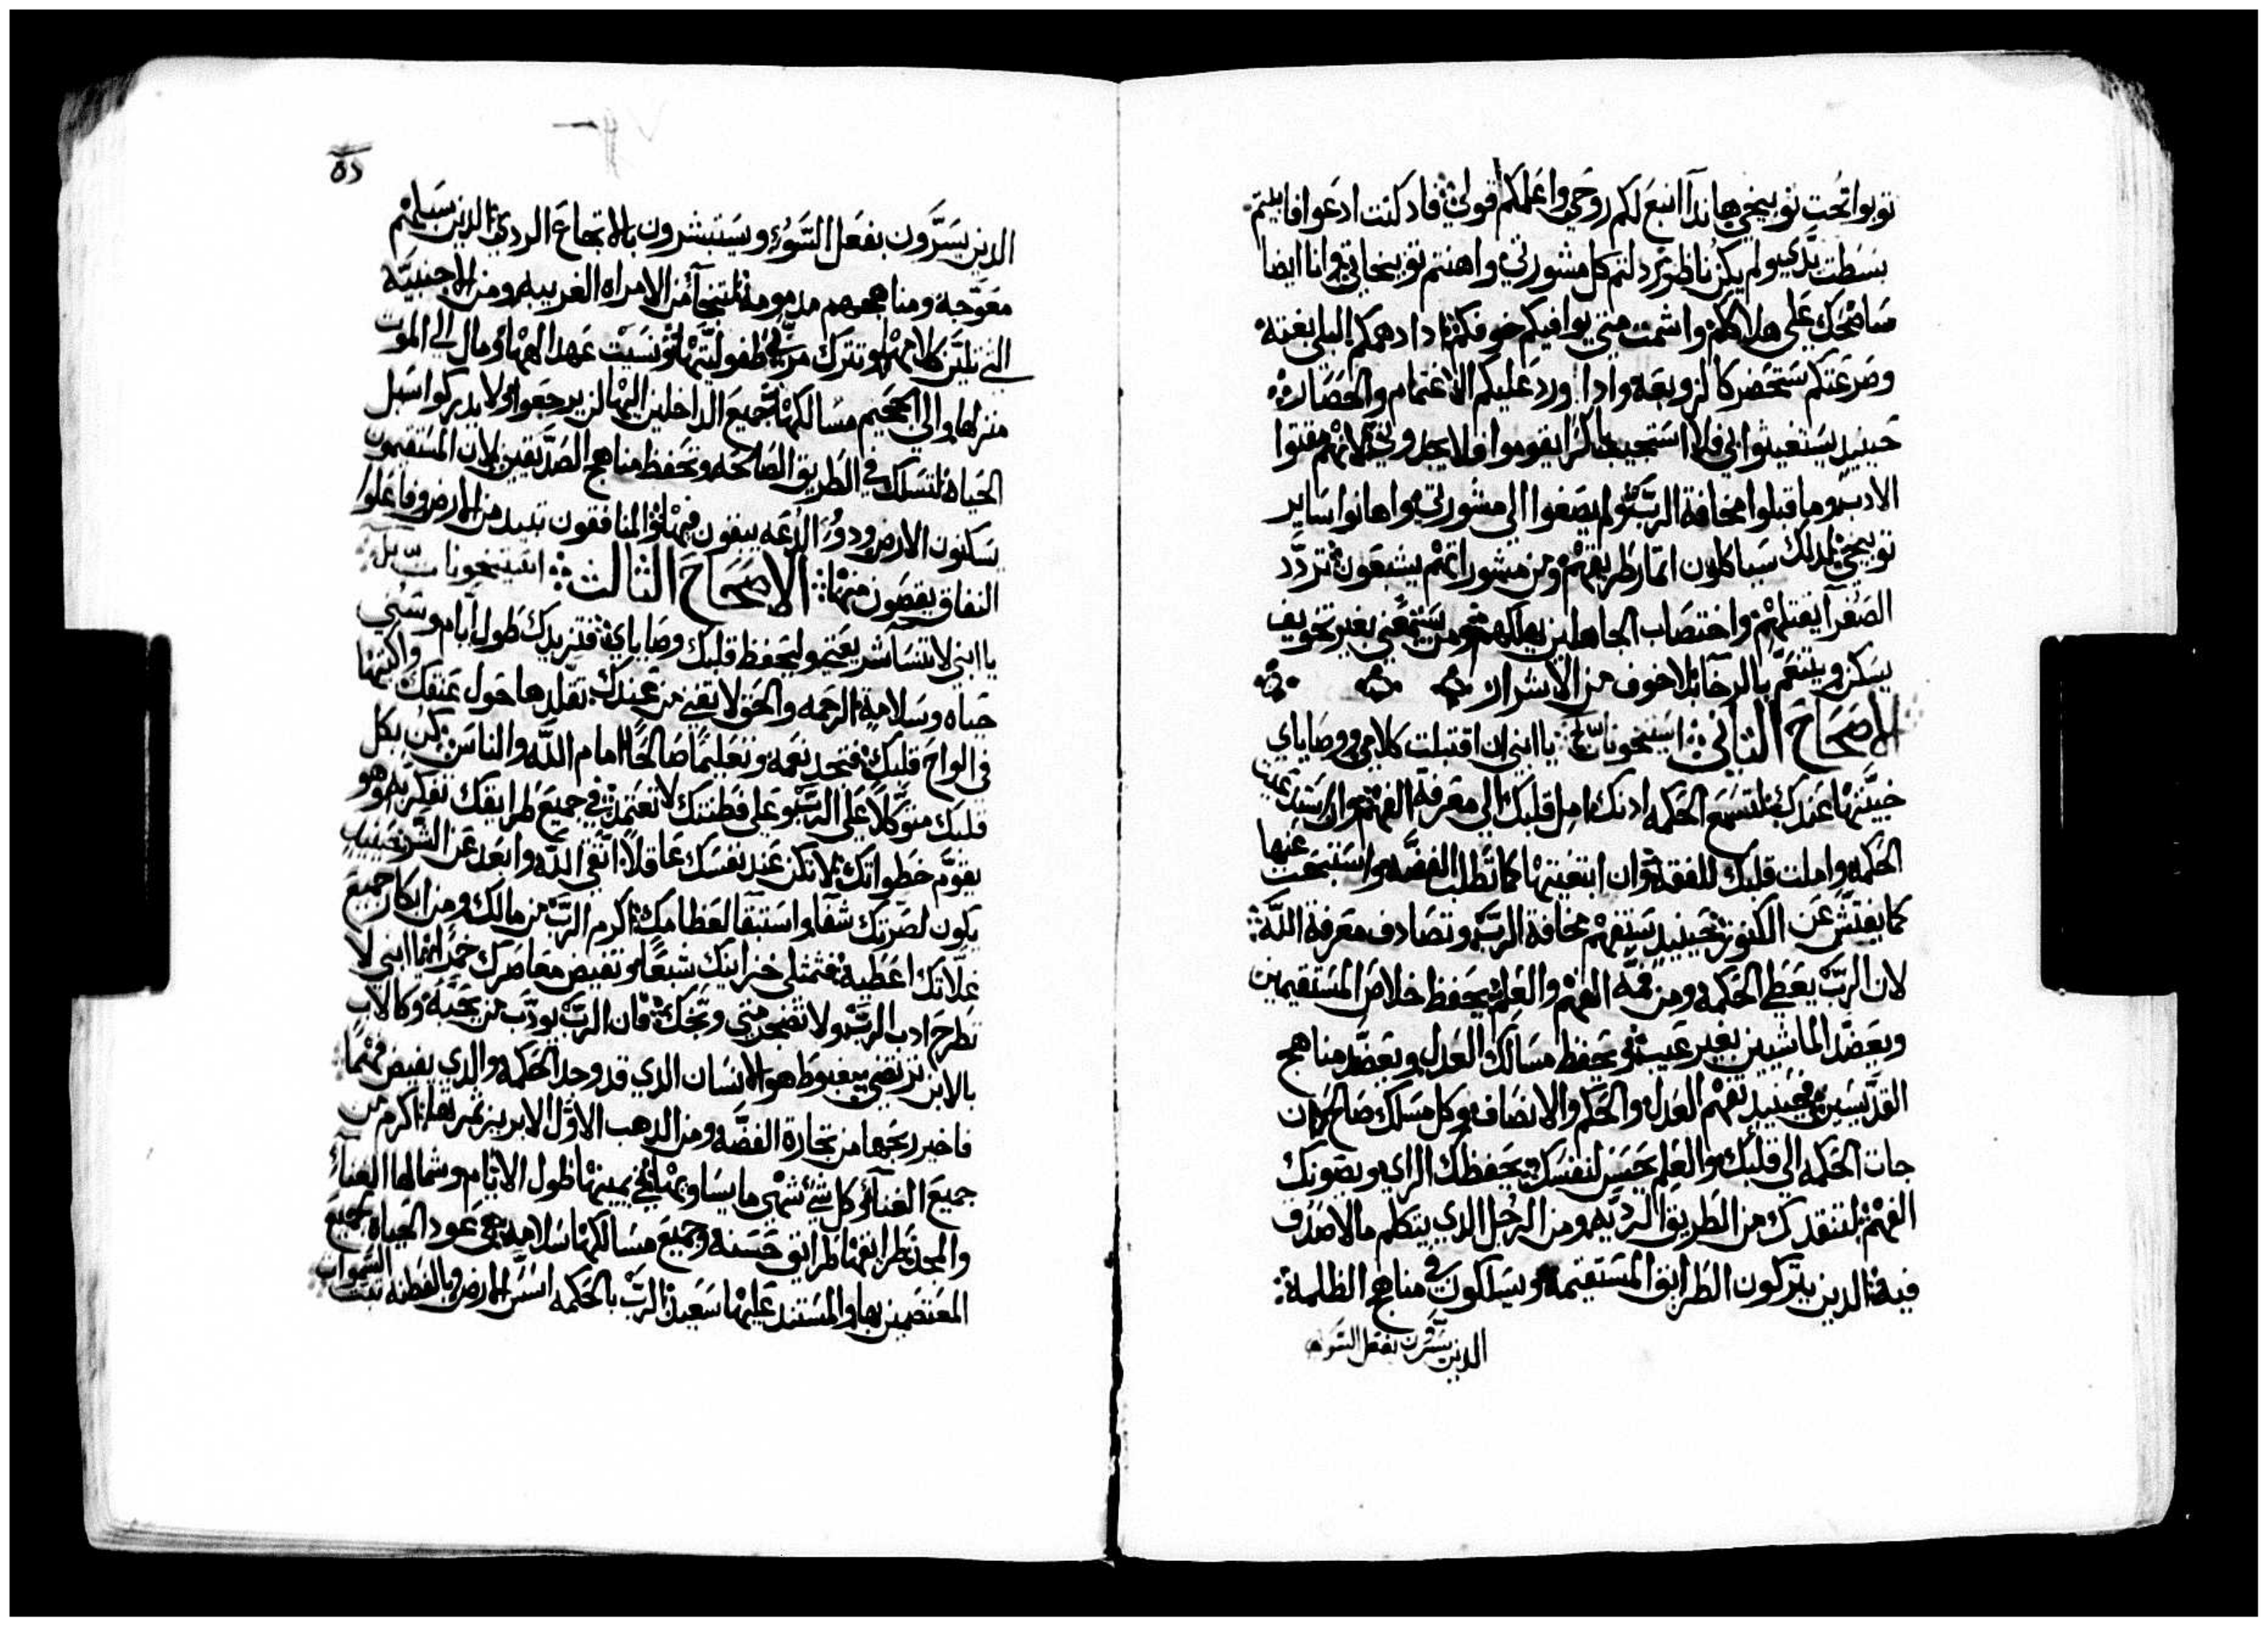 توبوا تحت توبيخي هاندا انبع لكم روحي واعلمكم قولي فاد كنت ادعوا فابيتم
بسطت يدي ولم يكن ناظر ردلتم كل مشورتي واهنتم توبيخاتي وانا ايضا
ساضحك على هلاككم واشمت متي يوافيكم خوفكم ادا دهمكم البلا بغته
وصرعتكم ستحضر كالزوبعه وادا ورد عليكم الاغتمام والحصار
حينيد يستغيثوا بي فلا استجيب باكرا يقوموا فلا يجدوني لانهم مقتوا
الادب وما قبلوا مخافة الرب ولم يصغوا الى مشورتي واهانوا ساير
توبيخي لدلك سياكلون اتمار طريقتهم ومن مشوراتهم يشبعون تردد
الصغرا يقتلهم واختصاب الجاهلين يهلكهم ومن يستمعني بغير تخويف
يسكن ويتنعم بالرخا بلا خوف من الاشرار
الاصحاح الثاني استيخونا يا ابني ان اقتبلت كلامي ووصاياي
خبيتها عندك لتسمع الحكمه ادنك امل قلبك الى معرفة الفهم وان استدعيت
الحكمه واملت قلبك للفقه وان ابتغيتها كما تطلب الفضه واستبحثت عنها
كما يفتش عن الكنوز فحينيد ستفهم مخافة الرب وتصادف معرفة الله
لان الرب يعطي الحكمه ومن فمه الفهم والعلم يحفظ خلاص المستقيمين
ويعضد الماشيين بغير عيب ويحفظ مسالك العدل ويعضد مناهج
القديسين فحينيد تفهم العدل والحكم والانصاف وكل مسلك صالح ان
جات الحكمه الى قلبك والعلم يحسن لنفسك يحفظك الراي ويصونك
الفهم لتنقدك من الطريق الرديه ومن الرجل الدي يتكلم مالاصدق
فيه الدين يتركون الطرايق المستقيمه ويسلكون في مناهج الظلمة
الدين يسرون بفعل السوء
الدين يسرون بفعل السوء ويستبشرون بالابتهاج الردي الدين سبلهم
معوجه ومناهجهم مدمومه لتنجا من الامراه الغريبه ومن الاجنبيه
التي تلين كلامها وتترك مربي طفوليتها ونسيت عهد الهها ومال الى الموت
منزلها والى الجحيم مسالكها جميع الداخلين اليها لن يرجعوا ولا يدركوا سبل
الحياه لتسلك في الطريق الصالحه وتحفظ مناهج الصديقين لان المستقيمون
يسكنون الارض ودوو الدعه يبقون فيها والمنافقون تبيد من الارض وفاعلوا
النفاق يقصون منها الاصحاح الثالث استيخونا
يا ابني لا تنسا شريعتي وليحفظ قلبك وصاياي فتزيدك طول ايام وسني
حياه وسلامه الرحمه والحق لا تفني من عندك تقلدها حول عنقك واكتبها
في الواح قلبك فتجد نعمه وتعليما صالحا امام الله والناس كن بكل
قلبك متوكلا على الرب وعلى فطنتك لا تعتمد في جميع طرايقك تفكر به وهو
يقوم خطواتك لا تكن عند نفسك عاقلا اتقي الله وابعد عن الشر فحينيد
يكون لصرتك شفا واستقا لعظامك اكرم الرب من مالك ومن ابكار جميع
غلاتك اعطيه فتمتلى خزاينك شبعا وتفيض معاصرك خمرا يا ابني لا
تطرح ادب الرب ولا تضجر متي وبخك فان الرب يودب من يحبه وكالاب
بالابن يرتضي مغبوط هو الانسان الدي قد وجد الحكمه والدي يفيض فهما
فاخير ربحها من تجارة الفضه ومن الدهب الاول الابريز تمرتها اكرم من
جميع الغنا وكل شي شهي ما يساويها في يمينها طول الايام وشمالها الغنا
والمجد طرايقها طرايق حسنه وجميع مسالكها سلامه هي عود الحياه لجميع
المعتصمين بها والمستند عليها سعيد الرب بالحكمه اسس الارض وبالفطنه تبت السموات